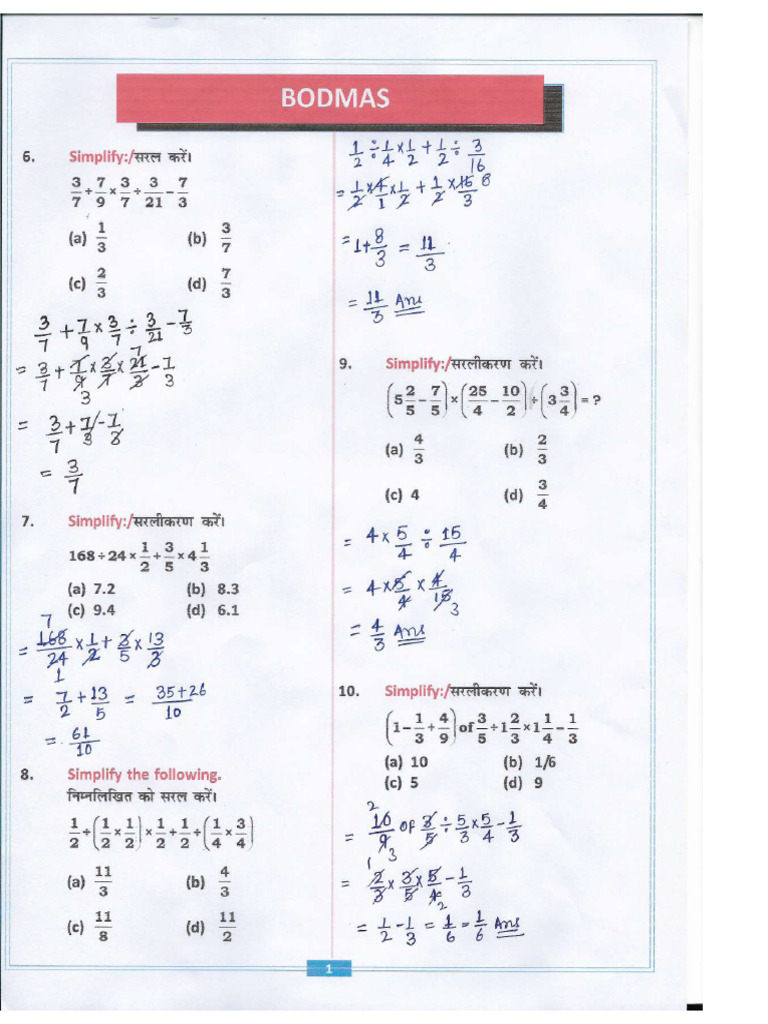 BODMAS
6. Simplify:/सरल करें।
3/7 + 7/9 × 3/7 ÷ 3/21 − 7/3
(a) 1/3 (b) 3/7
(c) 2/3 (d) 7/3
3/7 + 7/9 × 3/7 ÷ 3/21 − 7/3
= 3/7 + 7/9 × 3/7 × 21/3 − 7/3
7
3
= 3/7 + 7/3 − 7/3
= 3/7
7. Simplify:/सरलीकरण करें।
168 ÷ 24 × 1/2 + 3/5 × 4 1/3
(a) 7.2 (b) 8.3
(c) 9.4 (d) 6.1
7
= 168/24 × 1/2 + 3/5 × 13/3
1
= 7/2 + 13/5 = 35+26/10
= 61/10
8. Simplify the following.
निम्नलिखित को सरल करें।
1/2 ÷ (1/2 × 1/2) × 1/2 + 1/2 ÷ (1/4 × 3/4)
(a) 11/3 (b) 4/3
(c) 11/8 (d) 11/2
1/2 ÷ 1/4 × 1/2 + 1/2 ÷ 3/16
= 1/2 × 4/1 × 1/2 + 1/2 × 16/3 8
= 1 + 8/3 = 11/3
= 11/3 Ans
9. Simplify:/सरलीकरण करें।
(5 2/5 − 7/5) × (25/4 − 10/2) ÷ (3 3/4) = ?
(a) 4/3 (b) 2/3
(c) 4 (d) 3/4
= 4 × 5/4 ÷ 15/4
= 4 × 5/4 × 4/15
3
= 4/3 Ans
10. Simplify:/सरलीकरण करें।
(1 − 1/3 + 4/9) of 3/5 ÷ 1 2/3 × 1 1/4 − 1/3
(a) 10 (b) 1/6
(c) 5 (d) 9
2
= 10/9 of 3/5 ÷ 5/3 × 5/4 − 1/3
1 3
= 2/3 × 3/5 × 5/4 − 1/3
2
= 1/2 − 1/3 = 1/6 = 1/6 Ans
1